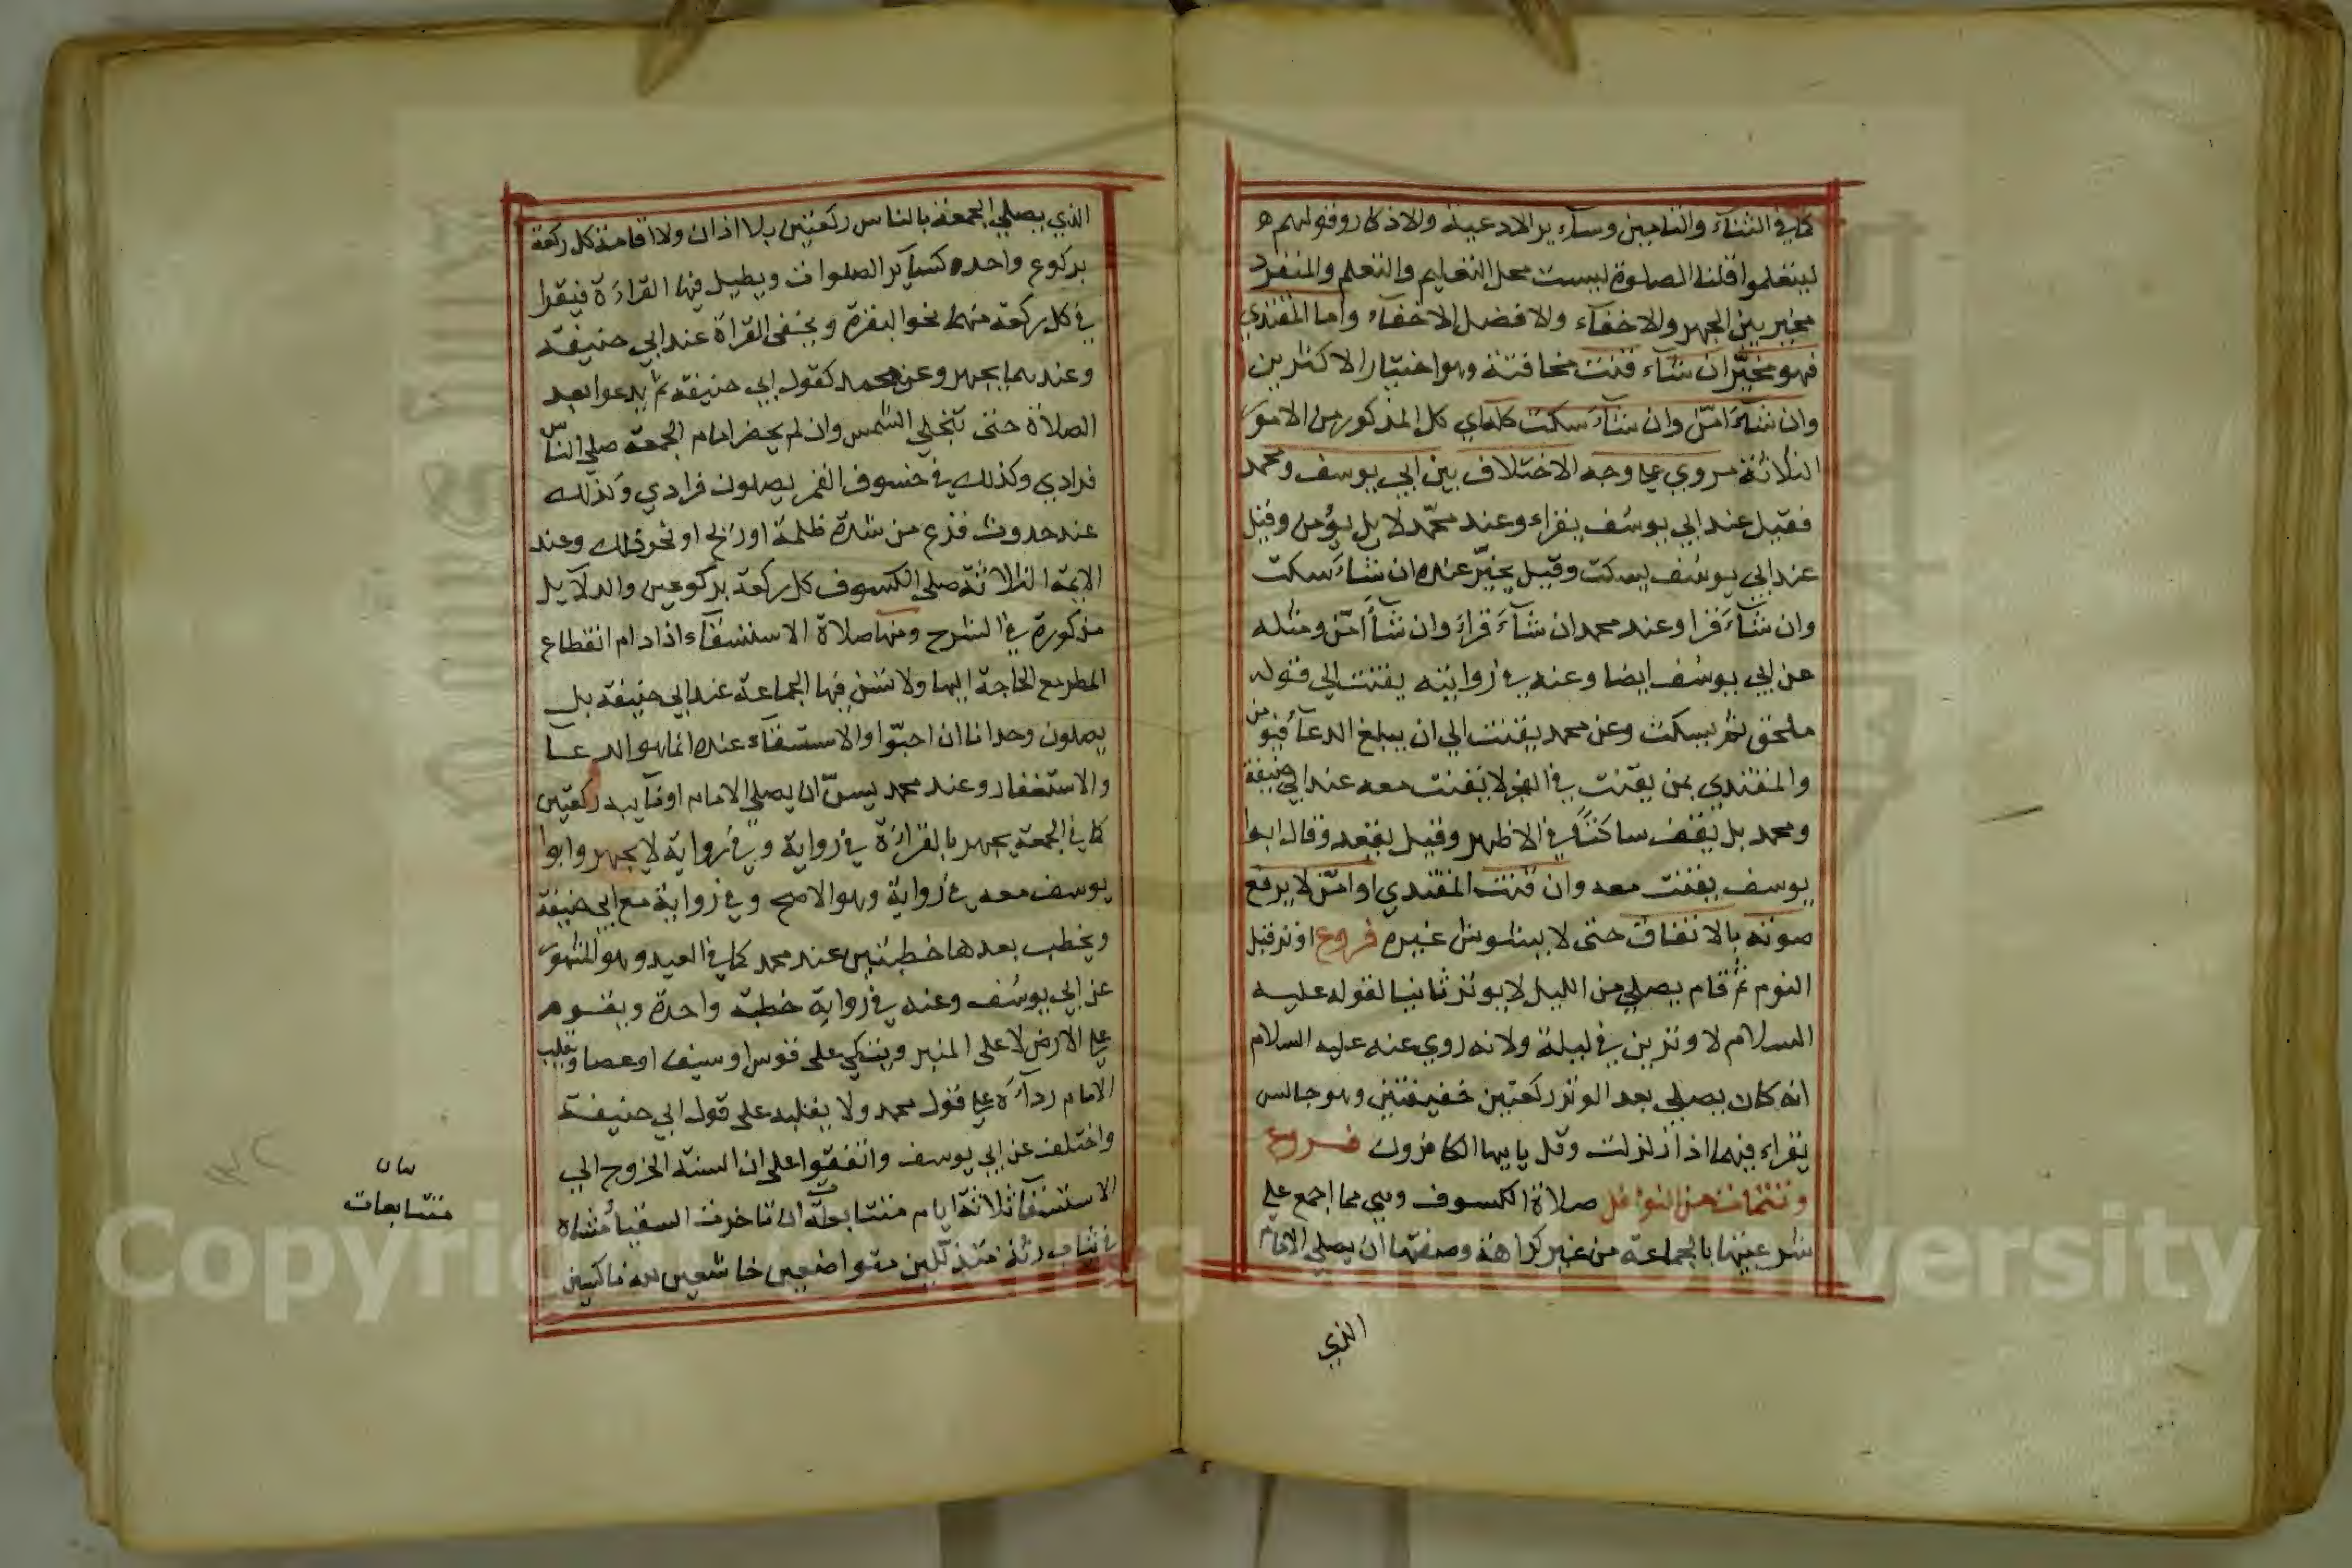 كما في الثناء والتامين وسآير الادعية والاذكار وقولهم
ليتعلموا قلنا الصلوة ليست محل التعليم والتعلم والمنفرد
مخير بين الجهر والاخفآء والافضل الاخفآء واما المقتدي
فهو مخيّر ان شآء قنت مخافتة وهو اختيار الاكثرين
وان شآء امّن وان شآء سكت كلماي كل المذكور من الامور
الثلاثة مروي علي وجه الاختلاف بين ابي يوسف ومحمد
فقيل عند ابي يوسف يقراء وعند محمّد لا بل يؤمن وقيل
عند ابي يوسف يسكت وقيل يخيّر عنده ان شآء سكت
وان شآء قرا وعند محمد ان شآء قراء وان شآء امّن ومثله
عن ابي يوسف ايضا وعنه في رواية يقنت الي قوله
ملحق ثم يسكت وعن محمد يقنت الي ان يبلغ الدعآ فيؤمن
والمقتدي بمن يقنت في الفجر لا يقنت معه عند ابي حنيفة
ومحمد بل يقف ساكتا في الاظهر وقيل يقعد وقال ابوا
يوسف يقنت معه وان قنت المقتدي او امّن لا يرفع
صوته بالاتفاق حتى لا يشوش غيره فروع اوتر قبل
النوم ثم قام يصلي من الليل لا يوتر ثانيا لقوله عليه
السلام لا وترين في ليلة ولانه روي عنه عليه السلام
انه كان يصلي بعد الوتر ركعتين خفيفتين وهو جالس
يقراء فيهما اذا زلزلت وقل يا ايها الكافرون فروع
وتتمات من النوافل صلاة الكسوف وهي مما اجمع علي
شرعيتها بالجماعة من غير كراهة وصفتها ان يصلي الامام
الذي
الذي يصلي الجمعة بالناس ركعتين بلا اذان ولا اقامة كل ركعة
بركوع واحده كسآير الصلوات ويطيل فيها القراءة فيقرا
في كل ركعة منهما نحو البقرة ويخفى القراة عند ابي حنيفة
وعندهما يجهر وعن محمد كقول ابي حنيفة ثم يدعوا بعد
الصلاة حتى تنجلي الشمس وان لم يحضر امام الجمعة صلي الناس
فرادي وكذلك في خسوف القمر يصلون فرادي وكذلك
عند حدوث فزع من شدة ظلمة او ريح او نحو ذلك وعند
الايمة الثلاثة صلي الكسوف كل ركعة بركوعين والدلآيل
مذكورة في الشرح ومنها صلاة الاستسقآء اذا دام انقطاع
المطر مع الحاجة اليها ولا تسن فيها الجماعة عند ابي حنيفة بل
يصلون وحدانا ان احبّوا والاستسقآء عنده انما هو الدعآ
والاستغفار وعند محمد يسنّ ان يصلي الامام او نآيبه ركعتين
كما في الجمعة يجهر بالقراءة في رواية وفي رواية لا يجهر وابوا
يوسف معه في رواية وهو الاصح وفي رواية مع ابي حنيفة
ويخطب بعدها خطبتين عند محمد كما في العيد وهو المشهور
عن ابي يوسف وعنه في رواية خطبة واحدة ويقوم
علي الارض لا على المنبر ويتكي على قوس او سيف او عصا ويقلب
الامام ردآءه علي قول محمد ولا يقلبه على قول ابي حنيفة
واختلف عن ابي يوسف واتفقوا على ان السنة الخروج الي
الاستسقآ ثلاثة ايام متتابعة ان تاخرت السقيا مشاة
في ثياب رثة متذللين متواضعين خاشعين لله ناكسين
بيان
متتابعات
Copyright © King Saud University